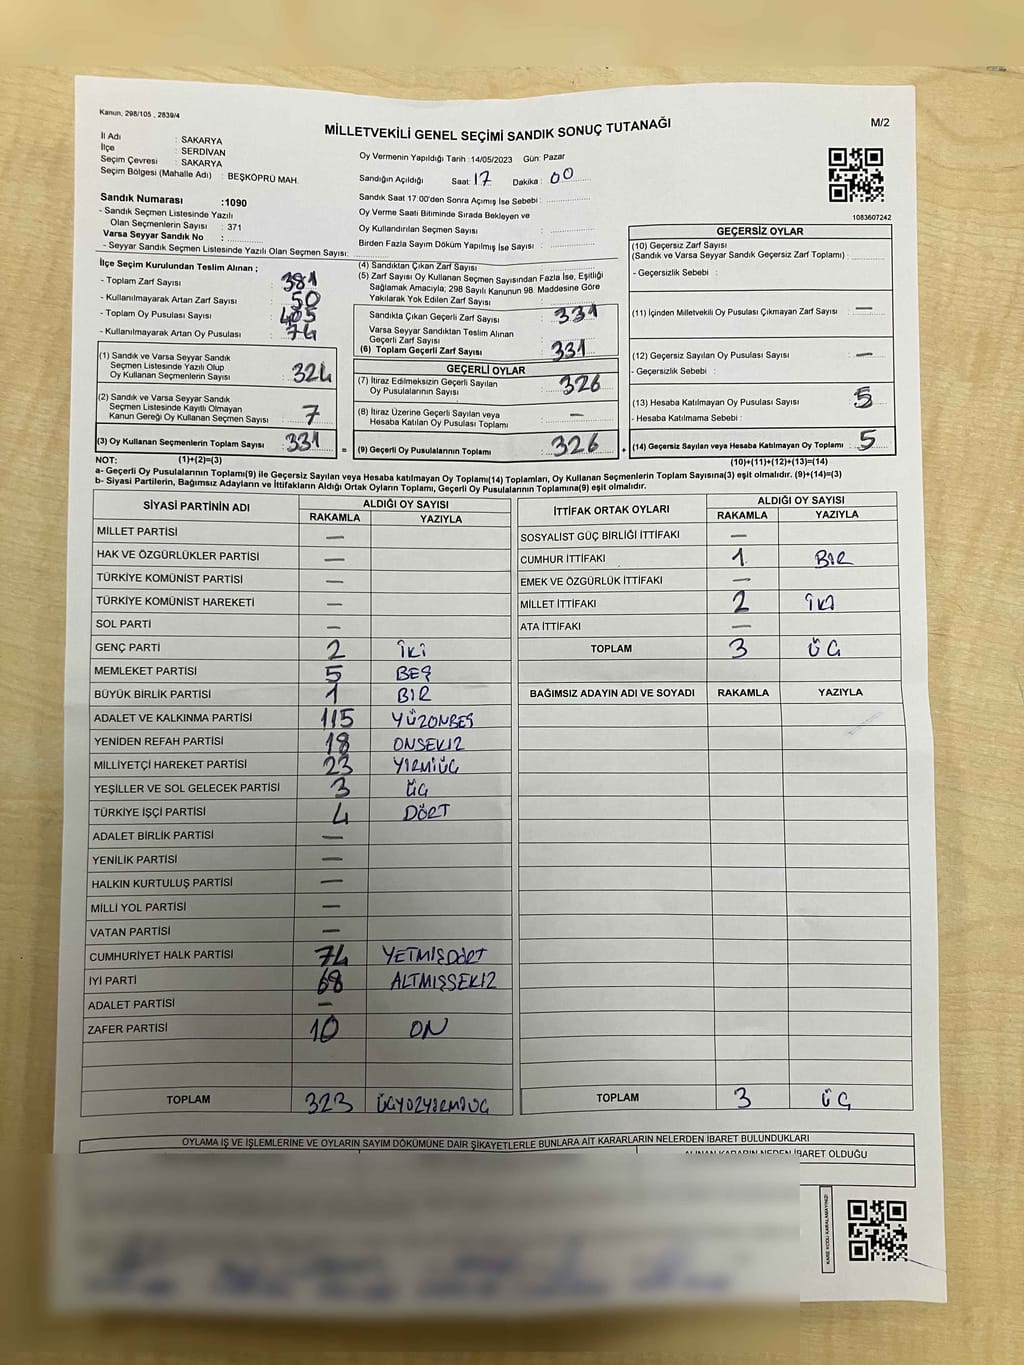 Kanun, 298/105 , 2839/4
MİLLETVEKİLİ GENEL SEÇİMİ SANDIK SONUÇ TUTANAĞI
M/2
İl Adı : SAKARYA
İlçe : SERDİVAN
Seçim Çevresi : SAKARYA
Seçim Bölgesi (Mahalle Adı) : BEŞKÖPRÜ MAH.
Sandık Numarası :1090
- Sandık Seçmen Listesinde Yazılı
Olan Seçmenlerin Sayısı : 371
Varsa Seyyar Sandık No :
- Seyyar Sandık Seçmen Listesinde Yazılı Olan Seçmen Sayısı:
Oy Vermenin Yapıldığı Tarih :14/05/2023 Gün: Pazar
Sandığın Açıldığı Saat: 17 Dakika : 00
Sandık Saat 17:00'den Sonra Açımış İse Sebebi :
Oy Verme Saati Bitiminde Sırada Bekleyen ve
Oy Kullandırılan Seçmen Sayısı :
Birden Fazla Sayım Döküm Yapılmış İse Sayısı :
1083607242
İlçe Seçim Kurulundan Teslim Alınan ;
- Toplam Zarf Sayısı : 381
- Kullanılmayarak Artan Zarf Sayısı : 50
- Toplam Oy Pusulası Sayısı : 405
- Kullanılmayarak Artan Oy Pusulası : 74
(1) Sandık ve Varsa Seyyar Sandık
Seçmen Listesinde Yazılı Olup
Oy Kullanan Seçmenlerin Sayısı : 324
(2) Sandık ve Varsa Seyyar Sandık
Seçmen Listesinde Kayıtlı Olmayan
Kanun Gereği Oy Kullanan Seçmen Sayısı : 7
(3) Oy Kullanan Seçmenlerin Toplam Sayısı : 331 =
(4) Sandıktan Çıkan Zarf Sayısı :
(5) Zarf Sayısı Oy Kullanan Seçmen Sayısından Fazla İse, Eşitliği
Sağlamak Amacıyla; 298 Sayılı Kanunun 98. Maddesine Göre
Yakılarak Yok Edilen Zarf Sayısı :
Sandıkta Çıkan Geçerli Zarf Sayısı : 331
Varsa Seyyar Sandıktan Teslim Alınan
Geçerli Zarf Sayısı :
(6) Toplam Geçerli Zarf Sayısı : 331
GEÇERLİ OYLAR
(7) İtiraz Edilmeksizin Geçerli Sayılan
Oy Pusulalarının Sayısı : 326
(8) İtiraz Üzerine Geçerli Sayılan veya
Hesaba Katılan Oy Pusulası Toplamı : —
(9) Geçerli Oy Pusulalarının Toplamı : 326 +
GEÇERSİZ OYLAR
(10) Geçersiz Zarf Sayısı
(Sandık ve Varsa Seyyar Sandık Geçersiz Zarf Toplamı) :
- Geçersizlik Sebebi :
(11) İçinden Milletvekili Oy Pusulası Çıkmayan Zarf Sayısı : —
(12) Geçersiz Sayılan Oy Pusulası Sayısı : —
- Geçersizlik Sebebi :
(13) Hesaba Katılmayan Oy Pusulası Sayısı : 5
- Hesaba Katılmama Sebebi :
(14) Geçersiz Sayılan veya Hesaba Katılmayan Oy Toplamı : 5
NOT: (1)+(2)=(3)
(10)+(11)+(12)+(13)=(14)
a- Geçerli Oy Pusulalarının Toplamı(9) ile Geçersiz Sayılan veya Hesaba katılmayan Oy Toplamı(14) Toplamları, Oy Kullanan Seçmenlerin Toplam Sayısına(3) eşit olmalıdır. (9)+(14)=(3)
b- Siyasi Partilerin, Bağımsız Adayların ve İttifakların Aldığı Ortak Oyların Toplamı, Geçerli Oy Pusulalarının Toplamına(9) eşit olmalıdır.
SİYASİ PARTİNİN ADI ALDIĞI OY SAYISI
RAKAMLA YAZIYLA
MİLLET PARTİSİ —
HAK VE ÖZGÜRLÜKLER PARTİSİ —
TÜRKİYE KOMÜNİST PARTİSİ —
TÜRKİYE KOMÜNİST HAREKETİ —
SOL PARTİ —
GENÇ PARTİ 2 İKİ
MEMLEKET PARTİSİ 5 BEŞ
BÜYÜK BİRLİK PARTİSİ 1 BİR
ADALET VE KALKINMA PARTİSİ 115 YÜZONBEŞ
YENİDEN REFAH PARTİSİ 18 ONSEKIZ
MİLLİYETÇİ HAREKET PARTİSİ 23 YİRMİÜÇ
YEŞİLLER VE SOL GELECEK PARTİSİ 3 ÜÇ
TÜRKİYE İŞÇİ PARTİSİ 4 DÖRT
ADALET BİRLİK PARTİSİ —
YENİLİK PARTİSİ —
HALKIN KURTULUŞ PARTİSİ —
MİLLİ YOL PARTİSİ —
VATAN PARTİSİ —
CUMHURİYET HALK PARTİSİ 74 YETMİŞDÖRT
İYİ PARTİ 68 ALTMIŞSEKIZ
ADALET PARTİSİ —
ZAFER PARTİSİ 10 ON
TOPLAM 323 ÜÇYÜZYİRMİÜÇ
İTTİFAK ORTAK OYLARI ALDIĞI OY SAYISI
RAKAMLA YAZIYLA
SOSYALİST GÜÇ BİRLİĞİ İTTİFAKI —
CUMHUR İTTİFAKI 1 BİR
EMEK VE ÖZGÜRLÜK İTTİFAKI —
MİLLET İTTİFAKI 2 İKİ
ATA İTTİFAKI —
TOPLAM 3 ÜÇ
BAĞIMSIZ ADAYIN ADI VE SOYADI RAKAMLA YAZIYLA
TOPLAM 3 ÜÇ
OYLAMA İŞ VE İŞLEMLERİNE VE OYLARIN SAYIM DÖKÜMÜNE DAİR ŞİKAYETLERLE BUNLARA AİT KARARLARIN NELERDEN İBARET BULUNDUKLARI
ALINAN KARARIN NEDEN İBARET OLDUĞU
KARE KODU KARALAMAYINIZ!